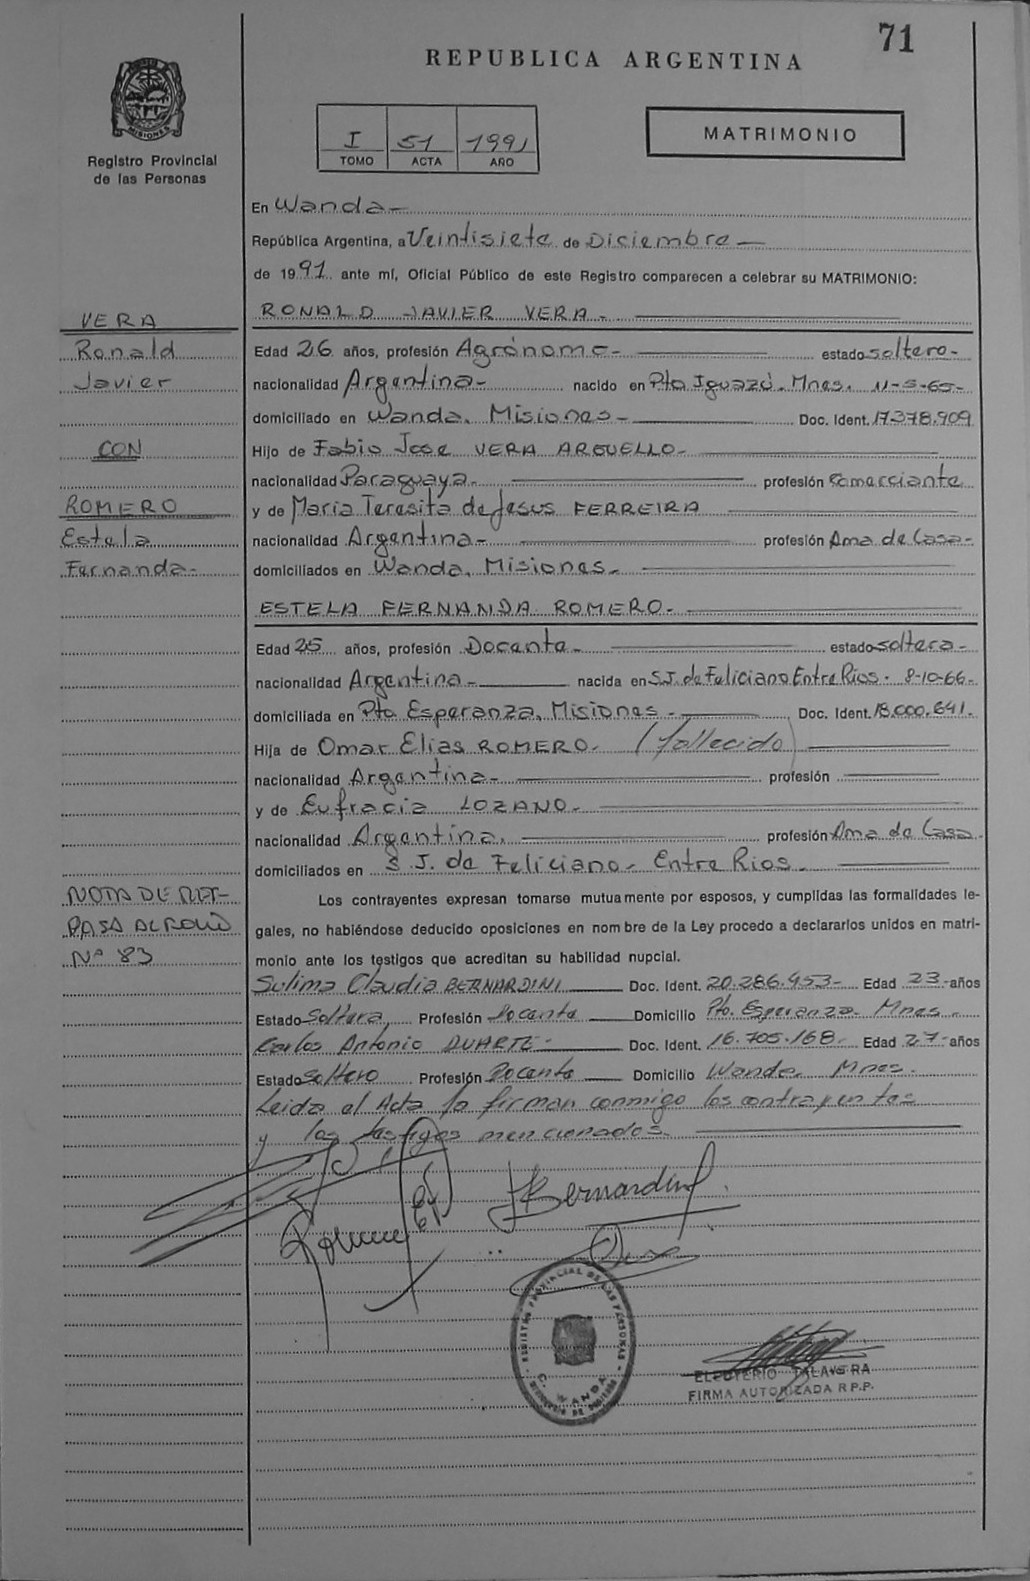 71
REPUBLICA ARGENTINA
MISIONES
Registro Provincial
de las Personas
I 51 1991
TOMO ACTA AÑO
MATRIMONIO
En Wanda-
República Argentina, a Veintisiete de Diciembre-
de 1991 ante mí, Oficial Público de este Registro comparecen a celebrar su MATRIMONIO:
RONALD JAVIER VERA-
Edad 26 años, profesión Agrónomo- estado soltero-
nacionalidad Argentina- nacido en Pto Iguazú. Mnes. 11-5-65-
domiciliado en Wanda, Misiones- Doc. Ident. 17.378.909
Hijo de Fabio Jose VERA ARGUELLO-
nacionalidad Paraguaya- profesión Comerciante
y de Maria Teresita de Jesus FERREIRA
nacionalidad Argentina- profesión Ama de Casa-
domiciliados en Wanda, Misiones-
ESTELA FERNANDA ROMERO-
Edad 25 años, profesión Docente- estado soltera-
nacionalidad Argentina- nacida en S.J. de Feliciano Entre Rios- 8-10-66-
domiciliada en Pto Esperanza, Misiones- Doc. Ident. 18.000.841.
Hija de Omar Elias ROMERO- (fallecido)
nacionalidad Argentina- profesión
y de Eufracia LOZANO-
nacionalidad Argentina, profesión Ama de Casa-
domiciliados en S. J. de Feliciano- Entre Rios-
Los contrayentes expresan tomarse mutuamente por esposos, y cumplidas las formalidades le-
gales, no habiéndose deducido oposiciones en nombre de la Ley procedo a declararlos unidos en matri-
monio ante los testigos que acreditan su habilidad nupcial.
Sulima Claudia BERNARDINI Doc. Ident. 20.286.453- Edad 23-años
Estado Soltera Profesión Docente Domicilio Pto. Esperanza- Mnes-
Carlos Antonio DUARTE- Doc. Ident. 16.705.168- Edad 27-años
Estado Soltero Profesión Docente Domicilio Wanda, Mnes.
Leida el Acta la firman conmigo los contrayentes
y los testigos mencionados
VERA
Ronald
Javier
CON
ROMERO
Estela
Fernanda-
NOTA DE REF-
PASA AL FOLIO
Nº 83
Bernardini
REGISTRO PROVINCIAL DE LAS PERSONAS
WANDA
ELEUTERIO TALAVERA
FIRMA AUTORIZADA R.P.P.